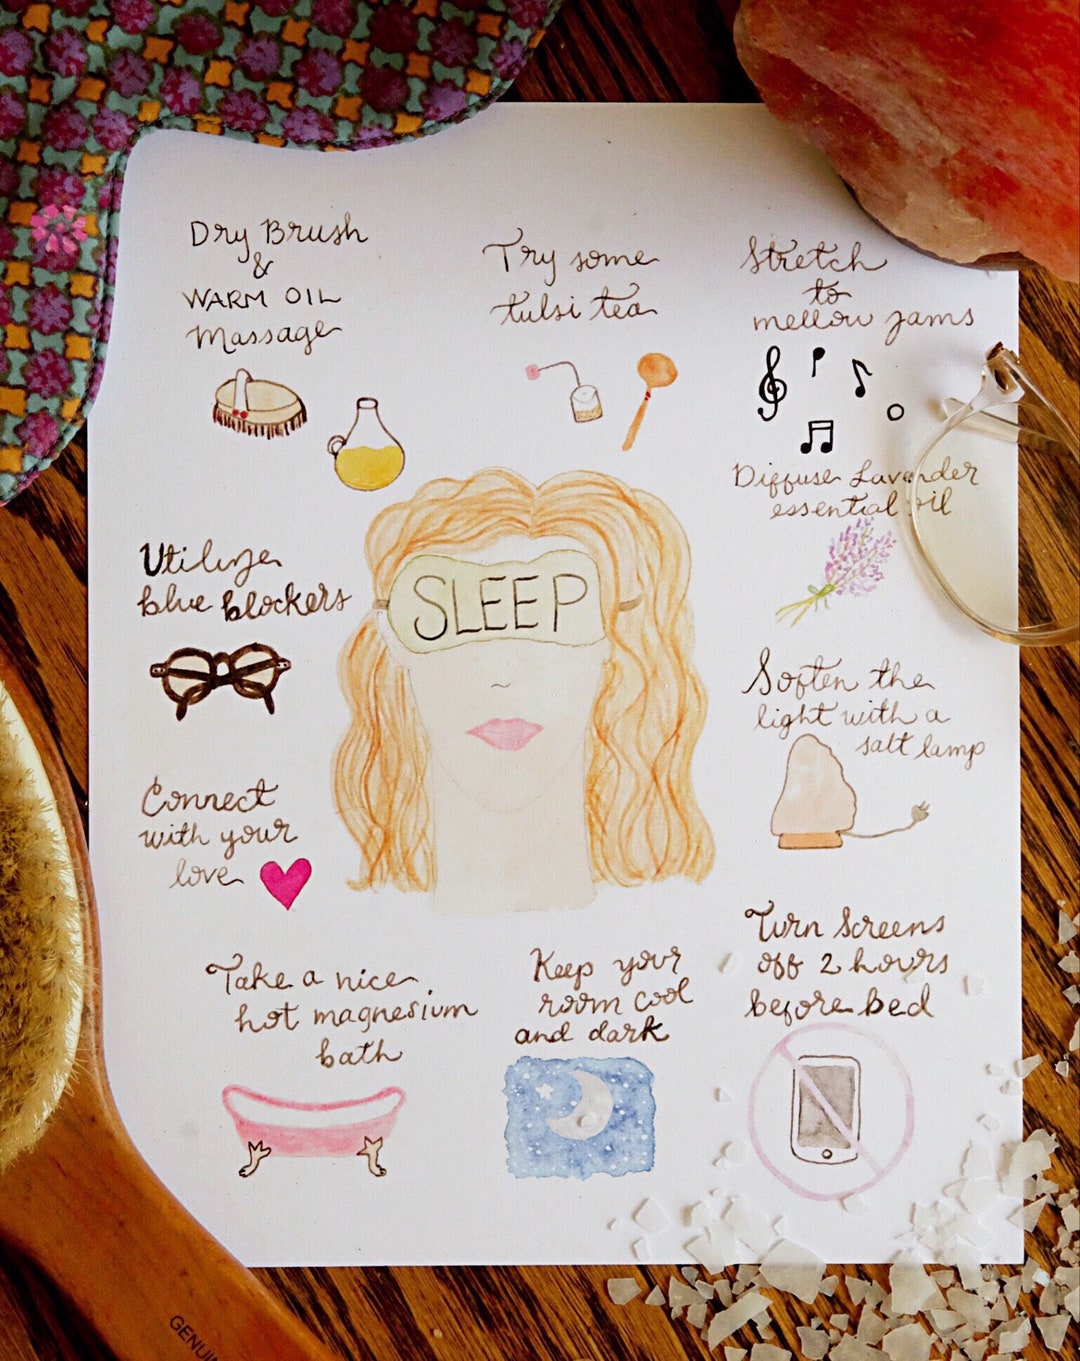 Dry Brush
&
WARM OIL
Massage
Try some
tulsi tea
Stretch
to
mellow jams
Diffuse Lavender
essential oil
Utilize
blue blockers
SLEEP
Soften the
light with a
salt lamp
Connect
with your
love
Take a nice
hot magnesium
bath
Keep your
room cool
and dark
Turn Screens
off 2 hours
before bed